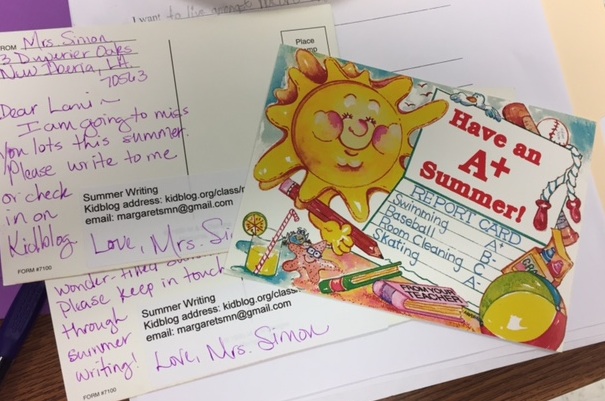 I want to
FROM Mrs. Simon
3 Duperier Oaks
New Iberia, LA.
70563
Place
Dear Lani~
I am going to miss
you lots this summer.
Please write to me
or check
in on
Kidblog
Summer Writing
Kidblog address: kidblog.org/class/
email: margaretsmn@gmail.com
Love, Mrs. Si
FORM #7100
wonder-filled
Please keep in touch
through
summer
writing!
Summer Writing
Kidblog address: kidblog.org/class
email: margaretsmn@gmail.com
Love, Mrs. Simon
FORM #7100
Have an
A+
Summer!
REPORT CARD
Swimming A+
Baseball B-
Room Cleaning C
Skating A-
FROM YOUR
TEACHER